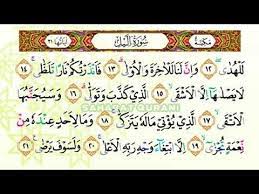 مَكِّيَّة سُورَةُ اللَّيْلِ آيَاتُهَا ٢١
لَلْهُدَىٰ ١٢ وَإِنَّ لَنَا لَلْآخِرَةَ وَالْأُولَىٰ ١٣ فَأَنذَرْتُكُمْ نَارًا تَلَظَّىٰ ١٤
لَا يَصْلَاهَا إِلَّا الْأَشْقَى ١٥ الَّذِي كَذَّبَ وَتَوَلَّىٰ ١٦ وَسَيُجَنَّبُهَا
SAHABAT QURANI
الْأَتْقَى ١٧ الَّذِي يُؤْتِي مَالَهُ يَتَزَكَّىٰ ١٨ وَمَا لِأَحَدٍ عِندَهُ مِن
نِّعْمَةٍ تُجْزَىٰ ١٩ إِلَّا ابْتِغَاءَ وَجْهِ رَبِّهِ الْأَعْلَىٰ ٢٠ وَلَسَوْفَ يَرْضَىٰ ٢١